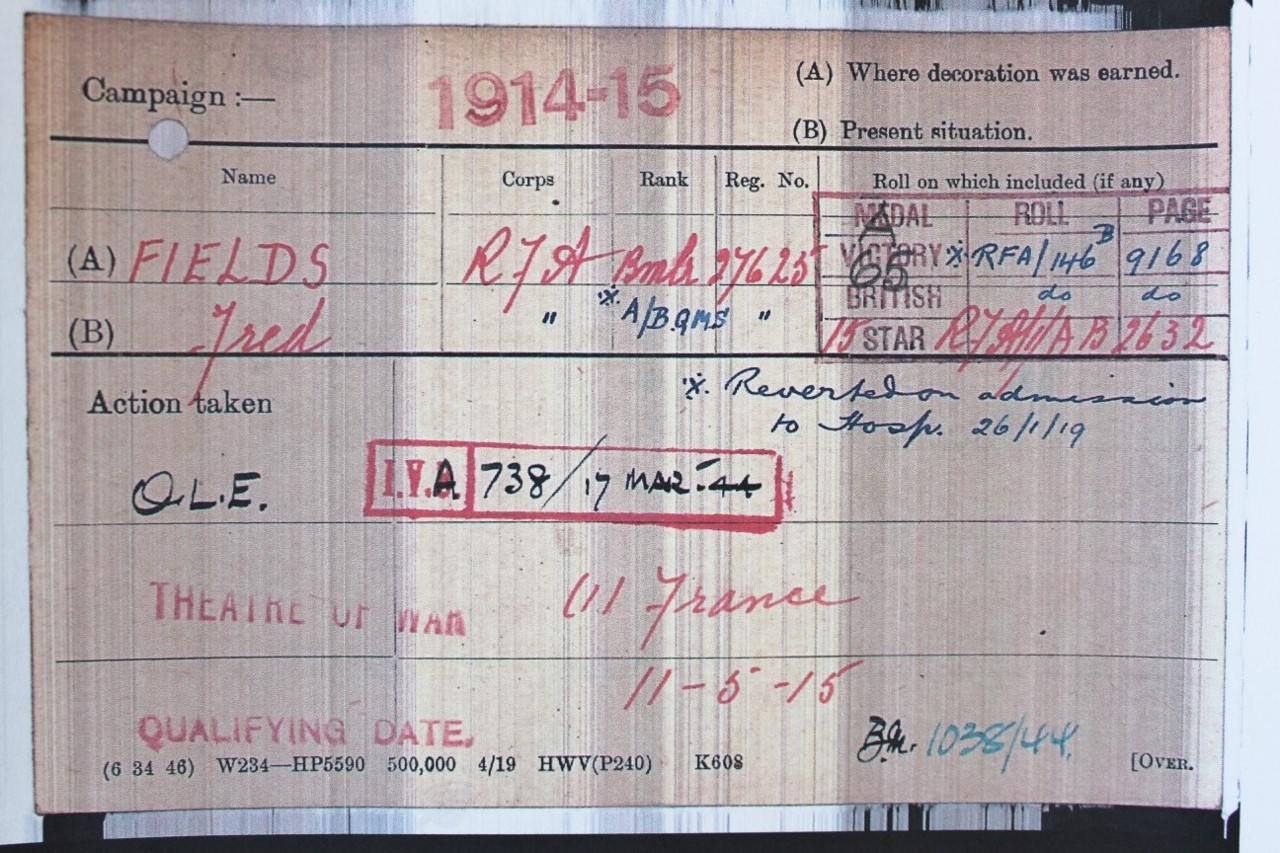 Campaign :— 1914-15 (A) Where decoration was earned.
(B) Present situation.
Name Corps Rank Reg. No. Roll on which included (if any)
MEDAL ROLL PAGE
A
(A) FIELDS RFA Bmbr 27625 VICTORY ※ RFA/146 B 9168
65
BRITISH do do
(B) Fred " ※ A/BQMS " 15 STAR RFA 2632
Action taken ※. Reverted on admission
to Hosp. 26/1/19
O.L.E. I.V. A 738/17 MAR. 44
THEATRE OF WAR (1) France
QUALIFYING DATE. 11-5-15
1038/44.
(6 34 46) W234—HP5590 500,000 4/19 HWV(P240) K608 [OVER.